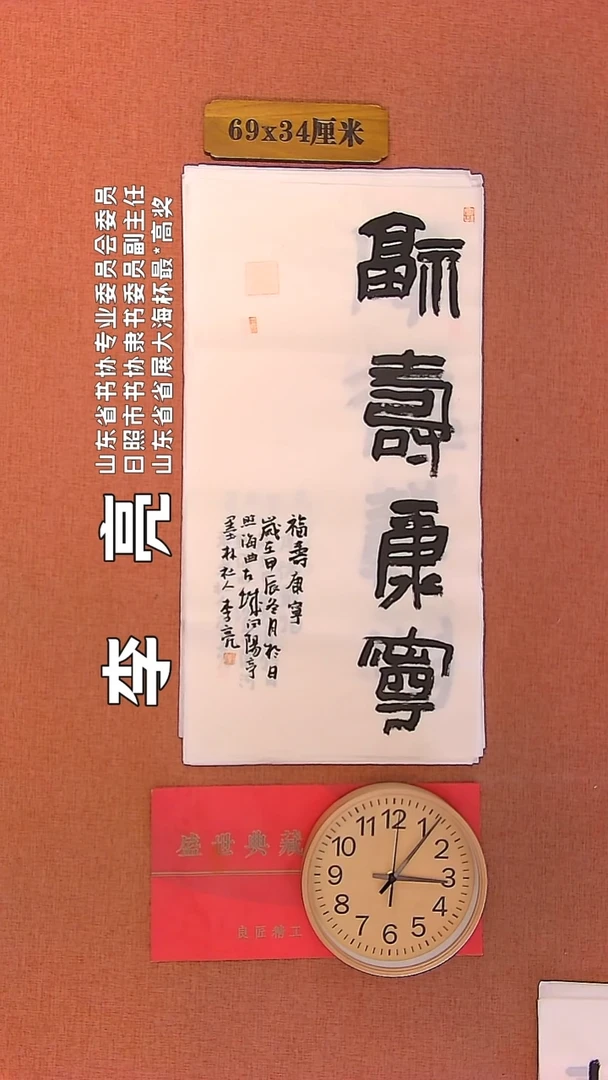 69x34厘米
福壽康寧
福壽康寧
歲在甲辰冬月於日
照海曲古城向陽亭
墨林社人李亮
山东省书协专业委员会委员
日照市书协隶书委员副主任
山东省省展大海杯最*高奖
李亮
盛世典藏
良匠精工
12
1
2
3
4
5
6
7
8
9
10
11